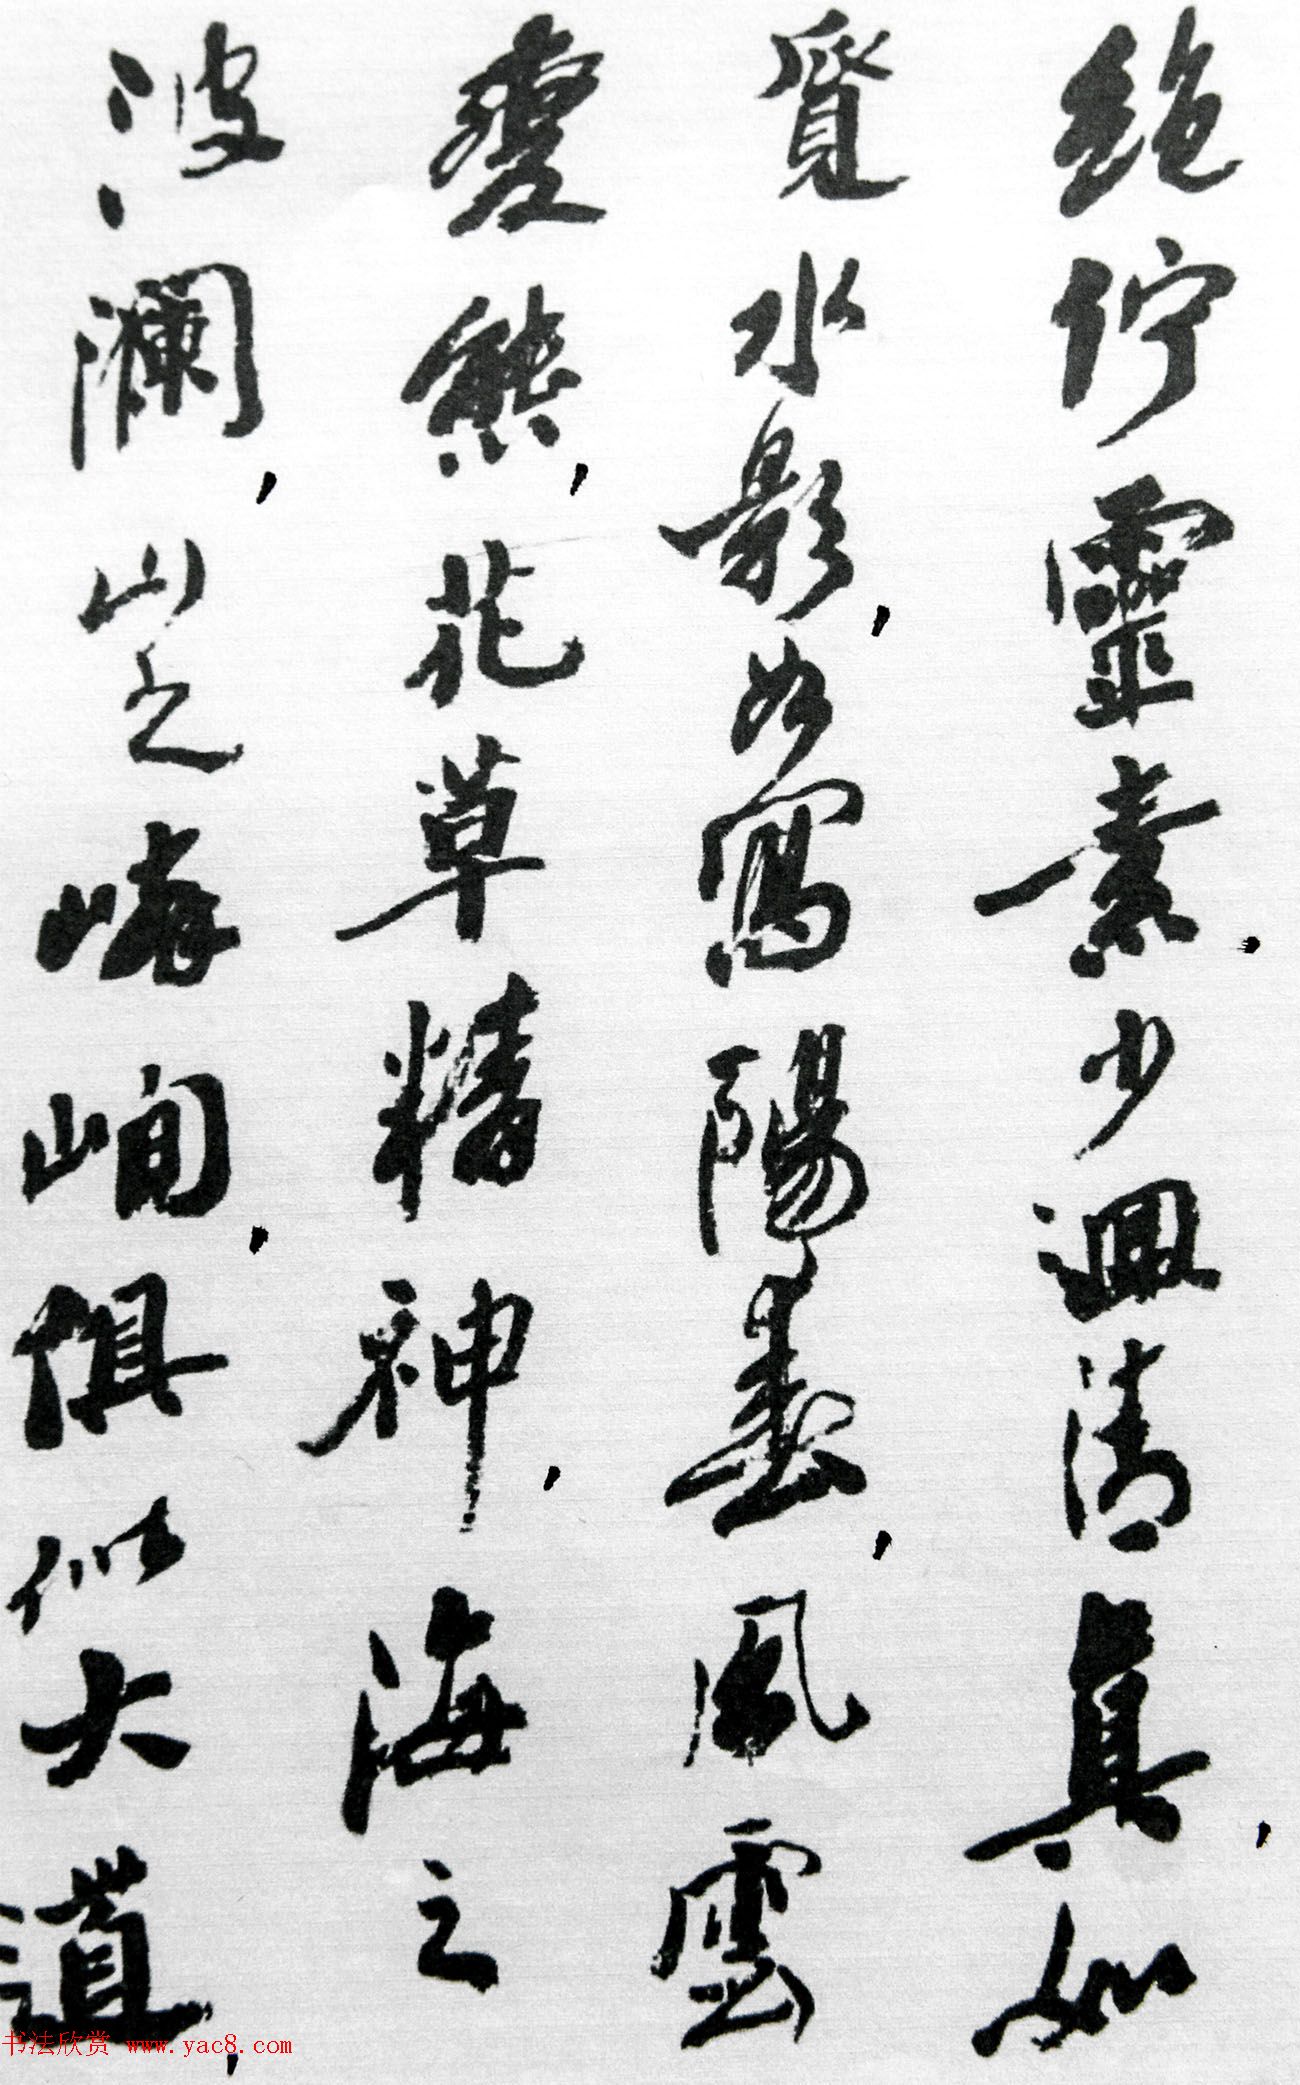 絕佇靈素.少迴清真,如
覓水影,如寫陽春,風雲
變態,花草精神,海之
波瀾,山之嶙峋,俱似大道,
书法欣赏 www.yac8.com